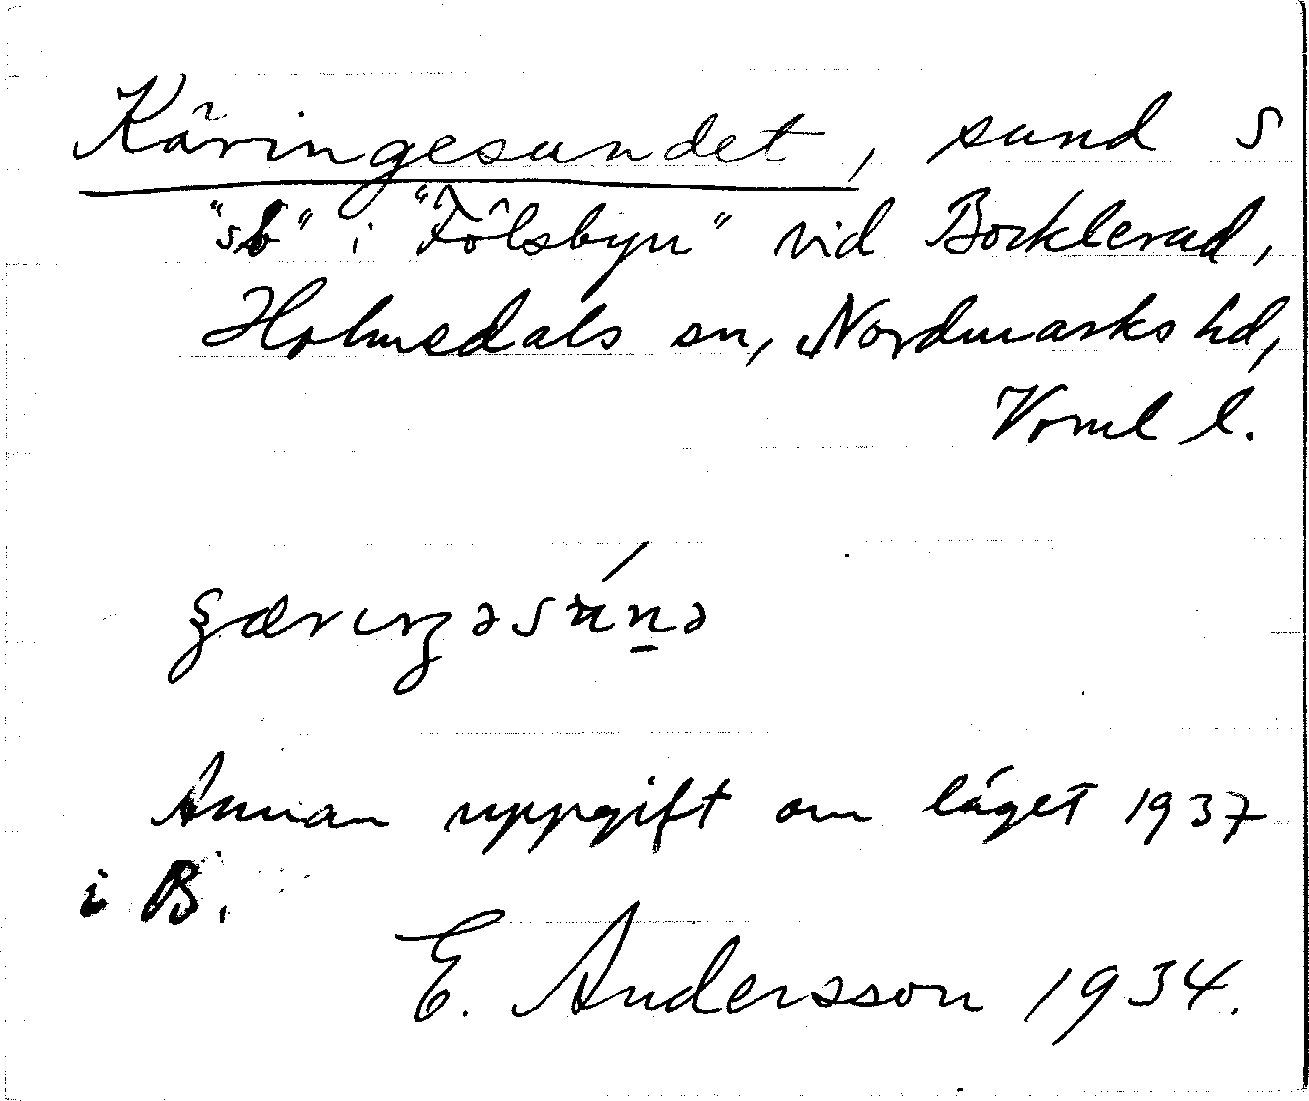 Käringesundet, sund S
"sb" i "Fölsbyn" vid Bocklerud,
Holmedals sn, Nordmarks hd,
Vrml l.
Annan uppgift om läget 1937
i B.
E. Andersson 1934.